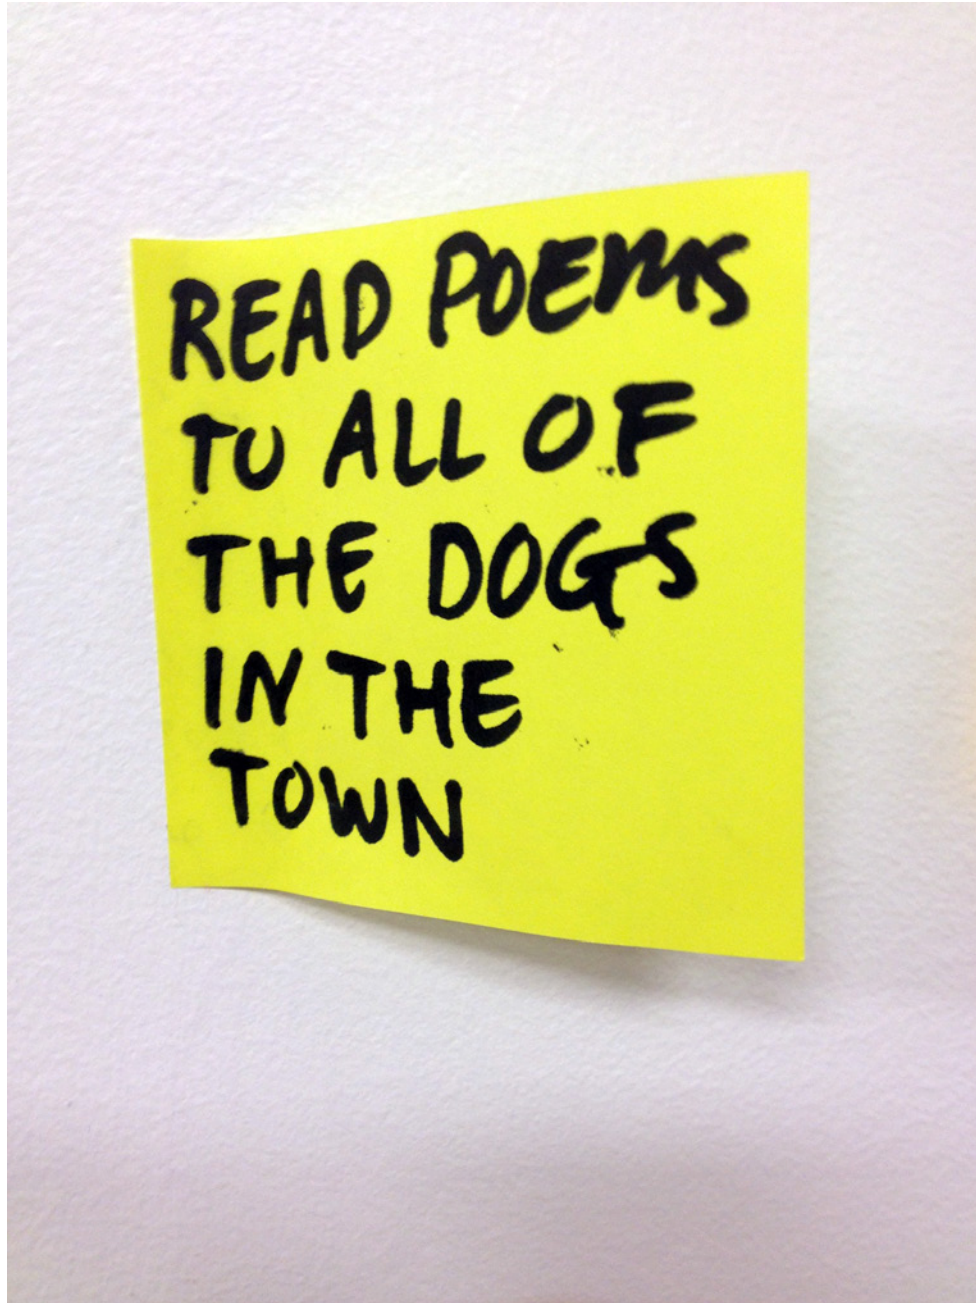 READ POEMS
TO ALL OF
THE DOGS
IN THE
TOWN